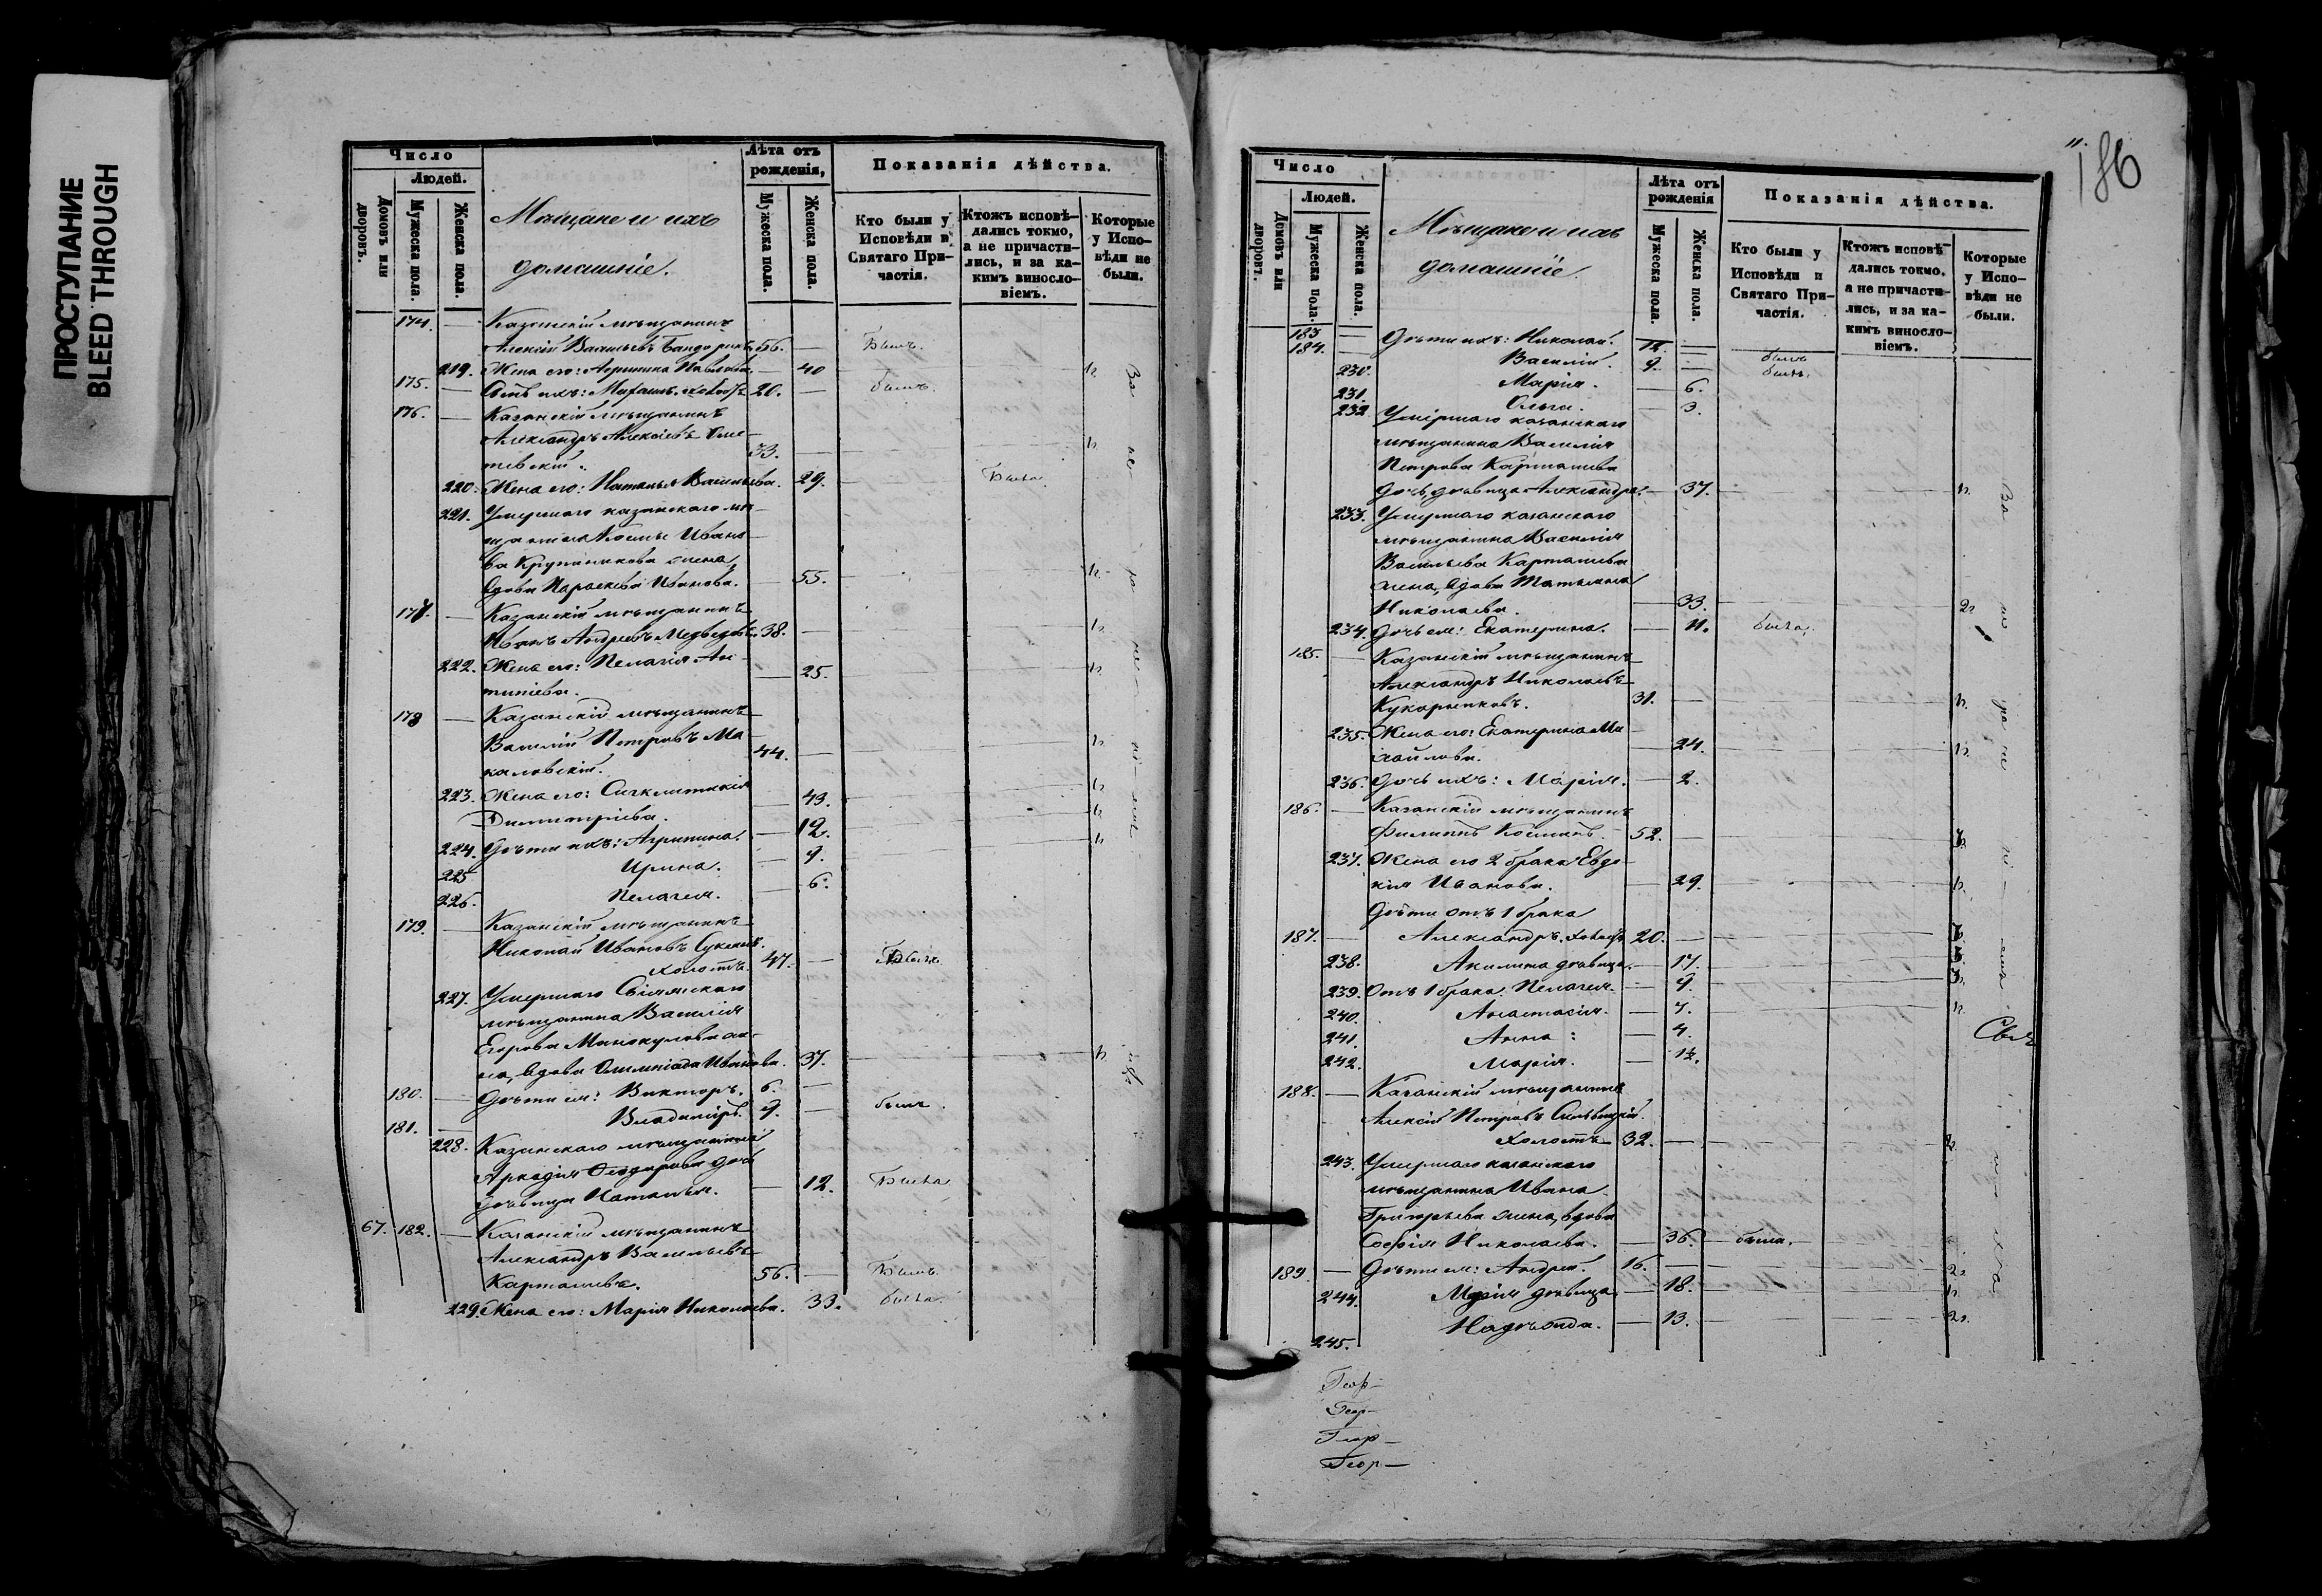 ПРОСТУПАНИЕ
BLEED THROUGH
Число
Людей.
Домовъ или дворовъ.
Мужеска пола.
Женска пола.
Мѣщане и ихъ
домашніе.
Лѣта отъ
рожденія,
Мужеска пола.
Женска пола.
Показанія дѣйства.
Кто были у
Исповѣди и
Святаго При-
частія.
Ктожъ исповѣ-
дались токмо,
а не причасти-
лись, и за ка-
кимъ винносло-
віемъ.
Которые
у Испо-
вѣди не
были.
174. — Казанскій мѣщанинъ
Алексій Васильевъ 56. — Былъ.
219. Жена его: Агрипина Павлова — 40
175. — Сынъ ихъ: холостъ 20. — былъ.
176. — Казанскій мѣщанинъ
Александръ Алексіевъ
33. —
220. Жена его: Наталья Васильева. 29. Была
221. Умершаго казанскаго мѣ-
щанина Ивано-
ва Крупинникова жена,
вдова Параскева Иванова. — 55.
177. — Казанскій мѣщанинъ
Иванъ Андреевъ Медведевъ. 38. —
222. Жена его: Пелагія Ан-
типіева. — 25.
178 — Казанскій мѣщанинъ
Василій Петровъ Ма-
каловскій. 44. —
223. Жена его: Синклитикія
Димитріева. — 43.
224. Дѣти ихъ: Агрипина. — 12.
225 Ирина. — 9.
226. Пелагея. — 6.
179. — Казанскій мѣщанинъ
Николай Ивановъ
холостъ. 47. — Былъ.
227. Умершаго Свіяжскаго
мѣщанина Василія
Егорова же-
на, вдова Олимпіада Иванова. 37.
180. — Дѣти ея: Викторъ. 6. —
181. — Владиміръ. 9. — былъ.
228. Казанскаго мѣщанина
Аркадія Ѳеодорова дочь
дѣвица Наталья. — 12. Была
67. 182. — Казанскій мѣщанинъ
Александръ Васильевъ
Карташевъ. 56. — Былъ.
229. Жена его: Марія Николаева. 33. была.
186
Число
Людей.
Домовъ или дворовъ.
Мужеска пола.
Женска пола.
Мѣщане и ихъ
домашніе.
Лѣта отъ
рожденія
Мужеска пола.
Женска пола.
Показанія дѣйства.
Кто были у
Исповѣди и
Святаго При-
частія.
Ктожъ исповѣ-
дались токмо,
а не причасти-
лись, и за ка-
кимъ винносло-
віемъ.
Которые
у Испо-
вѣди не
были.
183 — Дѣти ихъ: Николай. 12. — былъ
184. — Василій. 9. — былъ.
230. Марія. — 6.
231. Ольга. — 3.
232 Умершаго казанскаго
мѣщанина Василія
Петрова Карташева
дочь, дѣвица Александра. — 37.
233. Умершаго казанскаго
мѣщанина Василія
Васильева Карташева
жена, вдова Татьяна
Николаева. — 33.
234. Дочь ея: Екатерина. — 11. была.
185. — Казанскій мѣщанинъ
Александръ Николаевъ
Кукарниковъ. 31. —
235. Жена его: Екатерина Ми-
хайлова. — 24.
236. Дочь ихъ: Марія. — 2.
186. — Казанскій мѣщанинъ
Филиппъ Косминъ. 52. —
237. Жена его 2 брака Евдо-
кія Иванова. — 29.
Дѣти отъ 1 брака
187. — Александръ, холостъ 20. —
238. Акилина дѣвица. — 17.
239. Отъ 1 брака. Пелагея. — 9.
240. Анастасія. — 7.
241. Анна: — 4.
242. Марія. — 1½.
188. — Казанскій мѣщанинъ
Алексій Петровъ
холостъ 32. —
243. Умершаго казанскаго
мѣщанина Ивана
Григорьева жена, вдова
Софія Николаева. — 36. была.
189. — Дѣти ея: Андрей. 16. —
244. Марія дѣвица — 18.
245. Надѣжда. — 13.